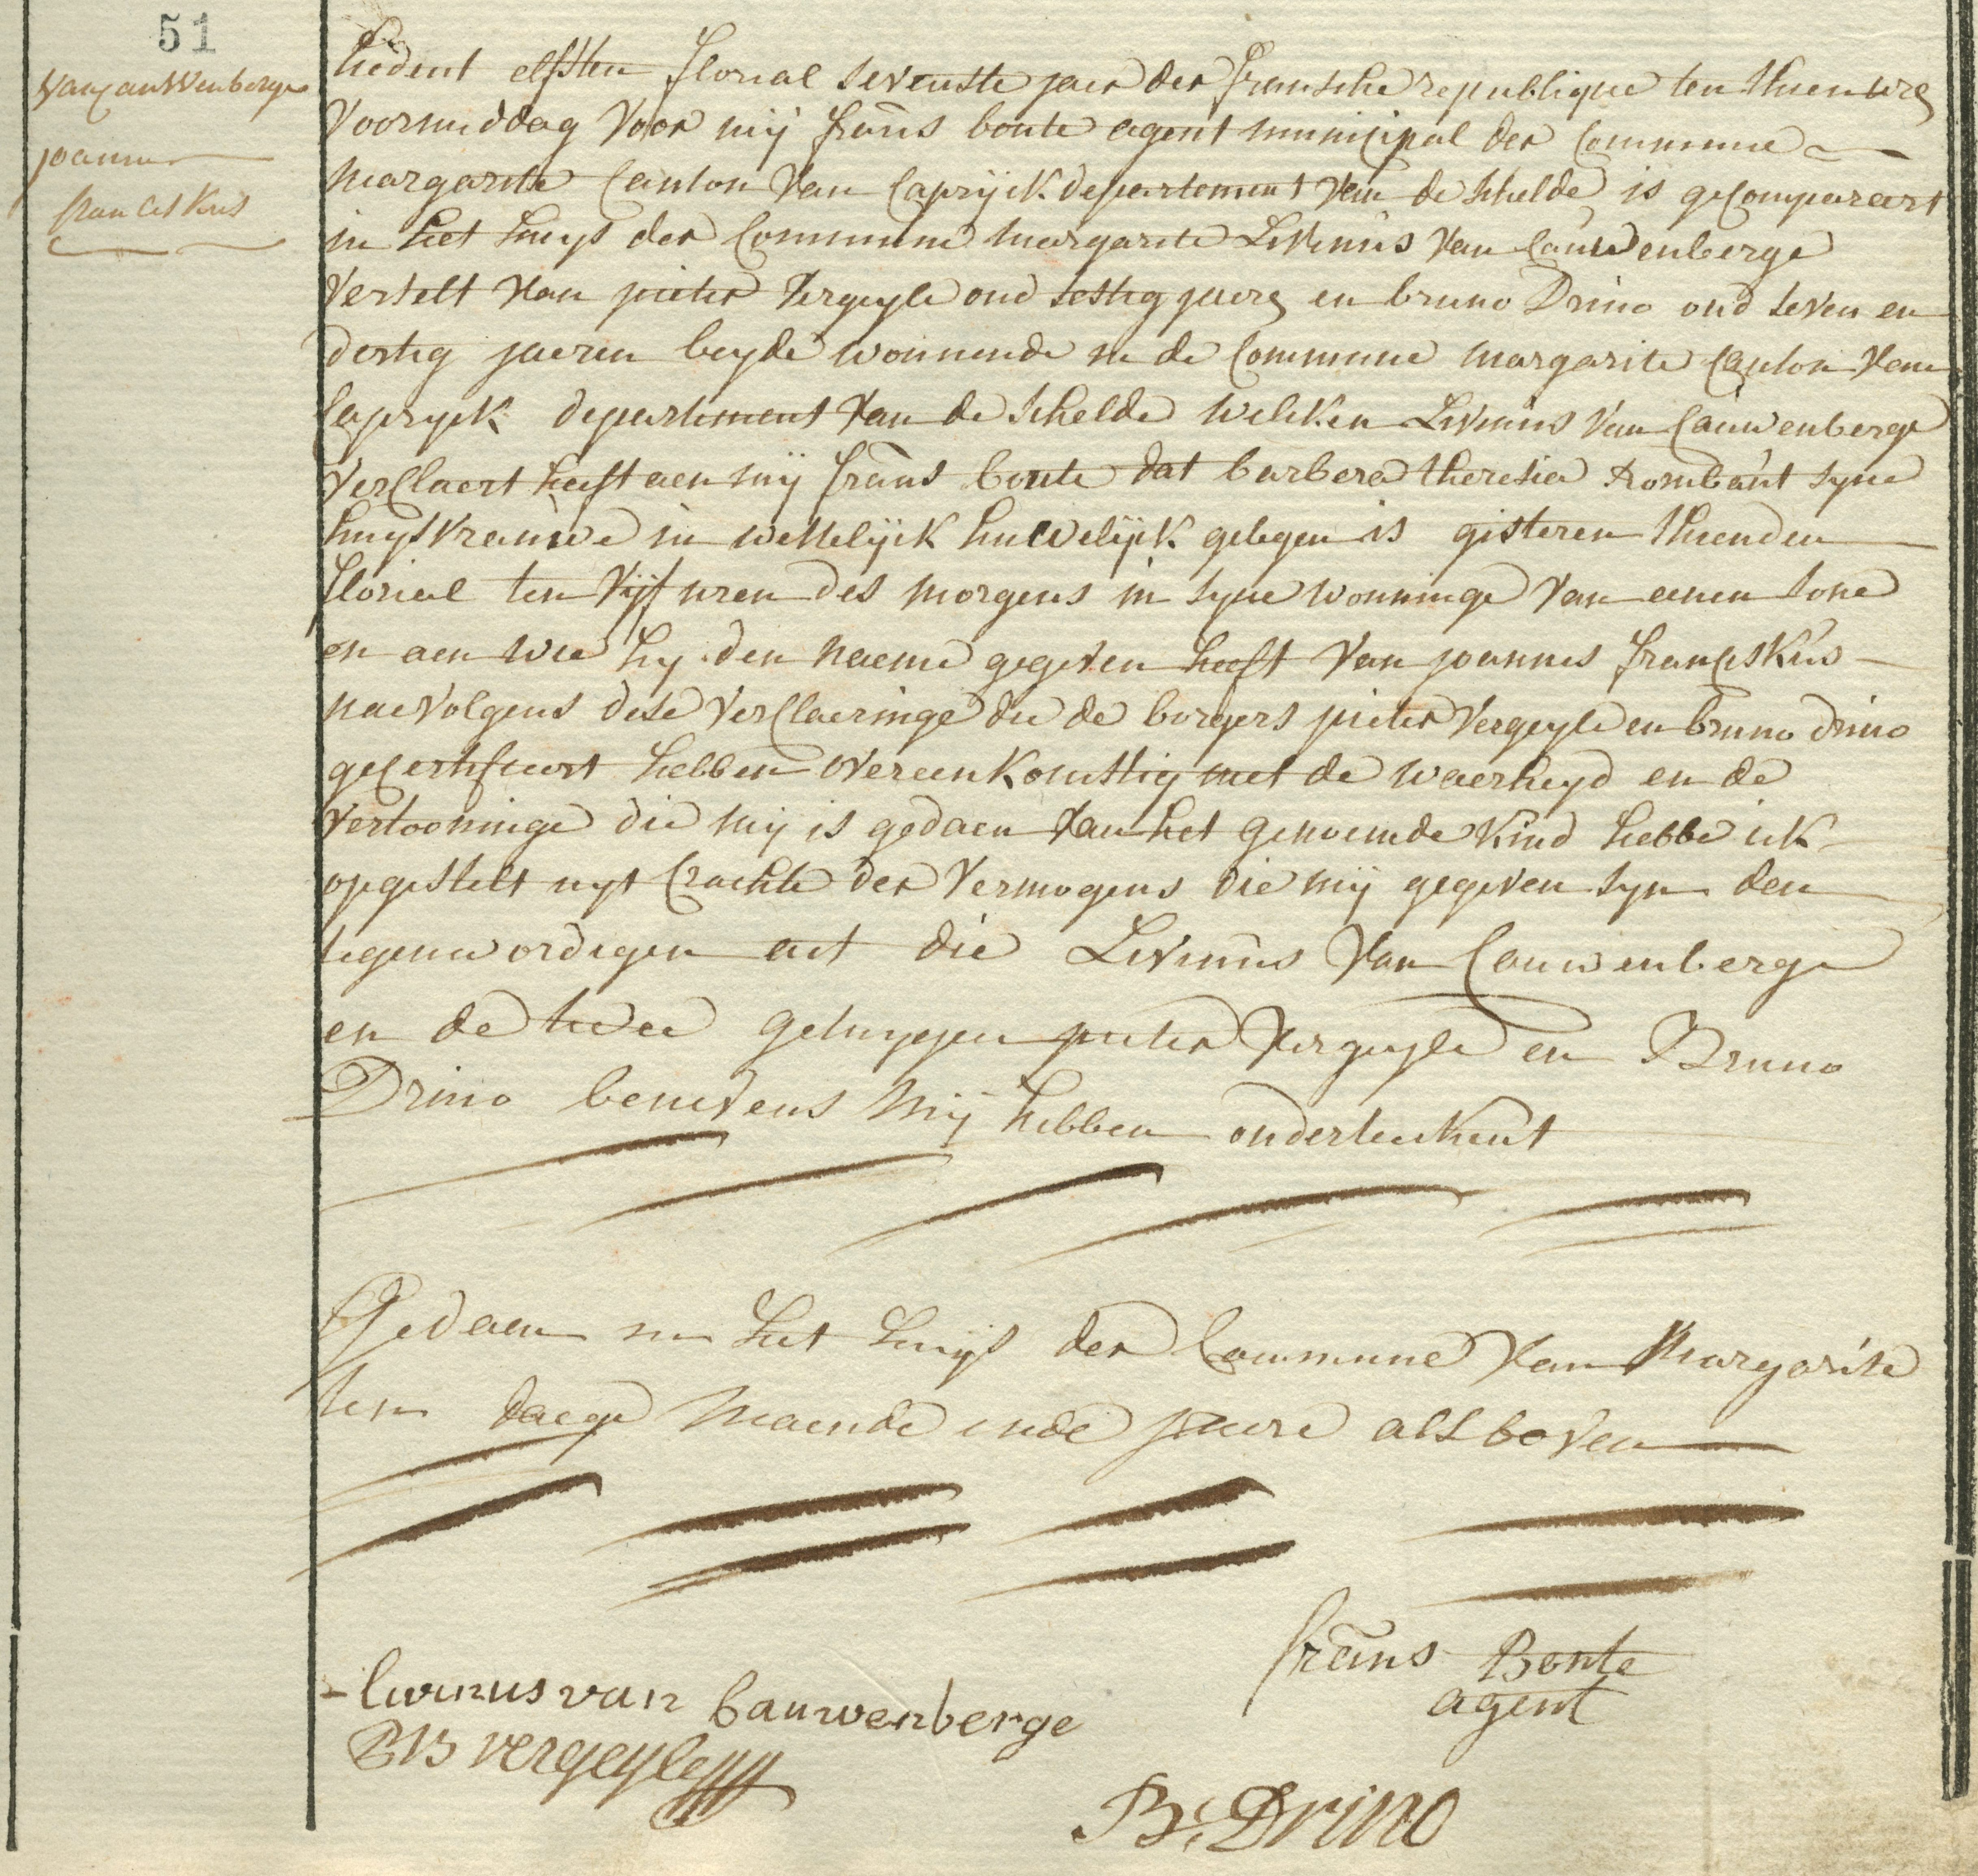 51
Van CauWenberge
joannes
francis Kus
hedent elfsten florial sevenste jaer der fransche republique ten thien urs
Voormiddag Voor mij frans bonte agent municipal der Commune
margarite Canton Van Caprijck departement Van de schelde is gecompareert
in het huijs der Commune margarite Livinus Van Cauwenberge
Verselt Van pieter Vergeyle oud sestig jaers en bruno Drino oud seven en
dertig jaeren beyde wonnende in de Commune margarite Canton Van
Capryck departement Van de schelde welken Livinus Van Cauwenberge
Verclaert heeft aen mij frans bonte dat barbera theresia Rombaut syne
huysvrauwe in wettelijck huwelijck gelegen is gisteren thienden
florial ten Vijf uren des morgens in syne wonninge Van eenen sone
en aen wie hy den naeme gegeven heeft Van joannes franciskus
naevolgens dese Verclaeringe die de borgers pieter Vergeyle en bruno drino
gecertifieert hebben overeenkomstig met de waerheyd en de
Vertooninge die mij is gedaen Van het genoemde Kind hebbe ick
opgestelt uyt Crachte der Vermogens die mij gegeven syn den
tegenwordigen act die Livinus Van Cauwenberge
en de twee getuygen pieter Vergeyle en Bruno
Drino benevens Mij hebben onderteekent
Gedaen in het huijs der Commune Van Margarite
ten daege Maende ende jaere als boven
frans Bonte
agent
livinus van Cauwenberge
vergeyle
B: Drino